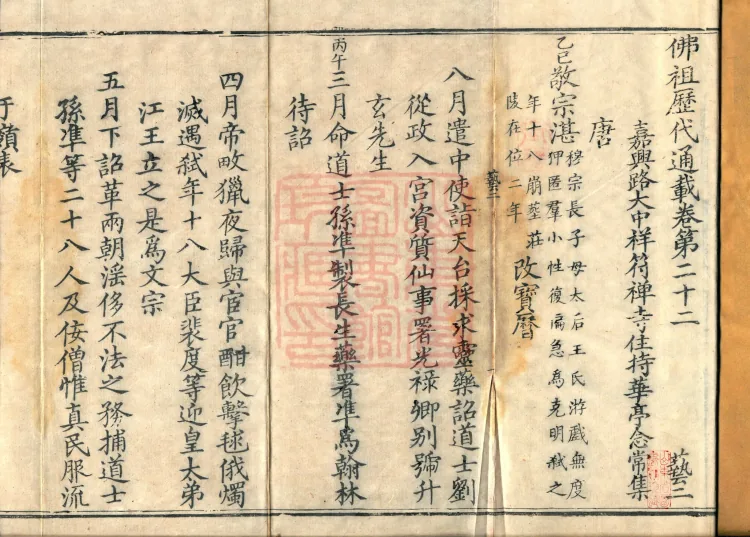 佛祖歷代通載卷第二十二 藝二
嘉興路大中祥符禪寺住持華亭念常集
唐
乙巳敬宗湛
穆宗長子母太后王氏游戲無度
狎匿羣小性復褊急爲克明弒之
年十八崩葬莊
陵在位二年
改寶曆
藝二
八月遣中使詣天台採求靈藥詔道士劉
從政入宮資質仙事署光祿卿別號升
玄先生
丙午三月命道士孫凖製長生藥署凖爲翰林
待詔
四月帝畋獵夜歸與宦官酣飲擊毬俄燭
滅遇弒年十八大臣裴度等迎皇太弟
江王立之是爲文宗
五月下詔革兩朝滛侈不法之務捕道士
孫凖等二十八人及佞僧惟真民服流
于嶺表